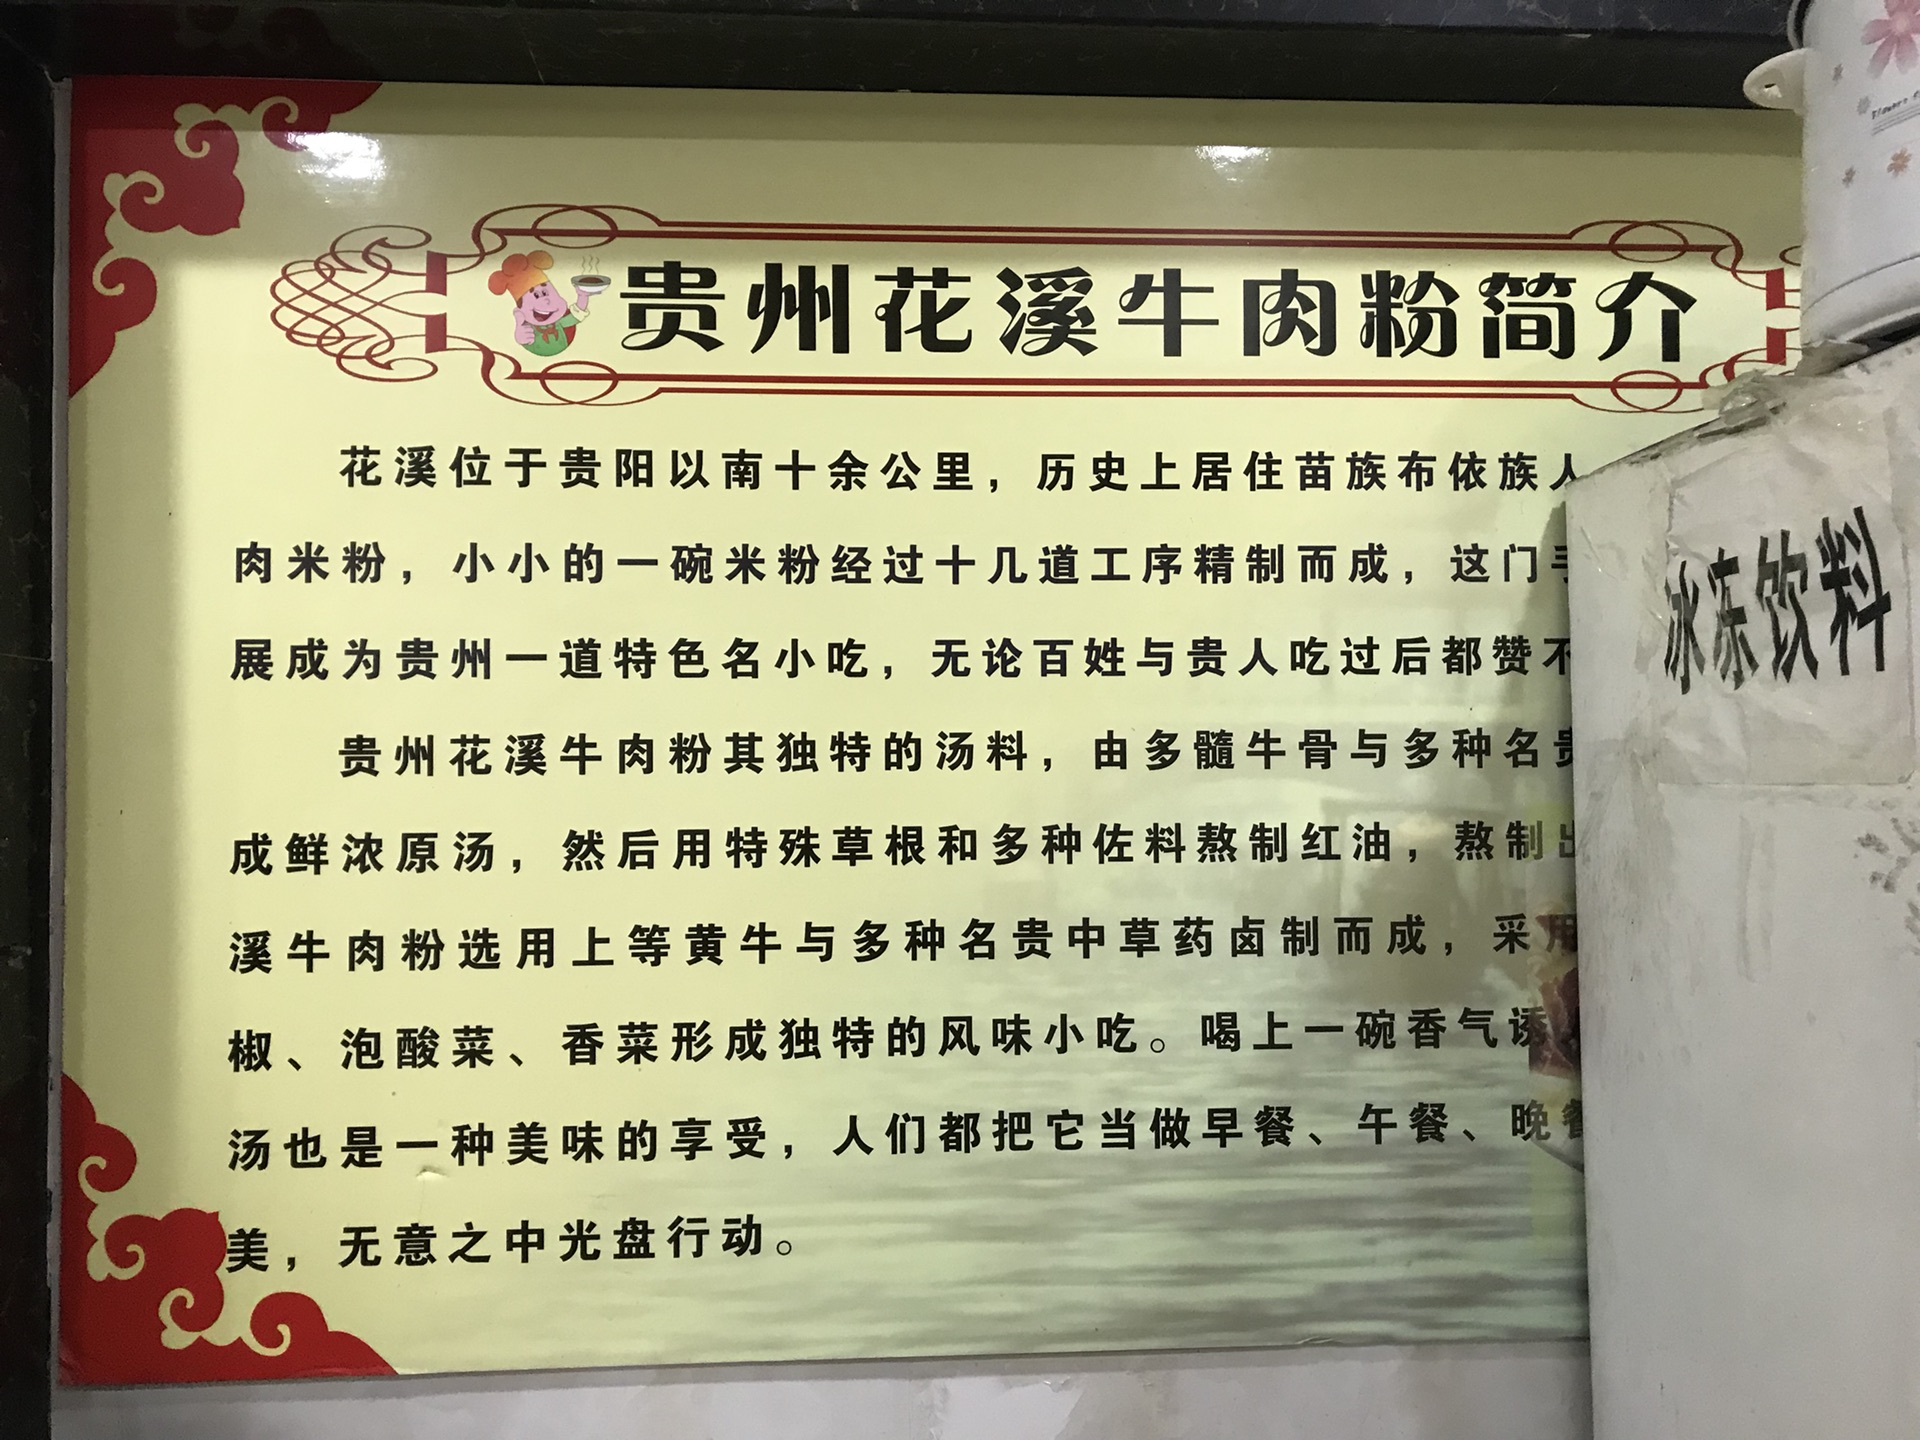 贵州花溪牛肉粉简介
花溪位于贵阳以南十余公里，历史上居住苗族布依族人
肉米粉，小小的一碗米粉经过十几道工序精制而成，这门手
展成为贵州一道特色名小吃，无论百姓与贵人吃过后都赞不
贵州花溪牛肉粉其独特的汤料，由多髓牛骨与多种名贵
成鲜浓原汤，然后用特殊草根和多种佐料熬制红油，熬制出
溪牛肉粉选用上等黄牛与多种名贵中草药卤制而成，采用
椒、泡酸菜、香菜形成独特的风味小吃。喝上一碗香气诱
汤也是一种美味的享受，人们都把它当做早餐、午餐、晚餐
美，无意之中光盘行动。
冰冻饮料